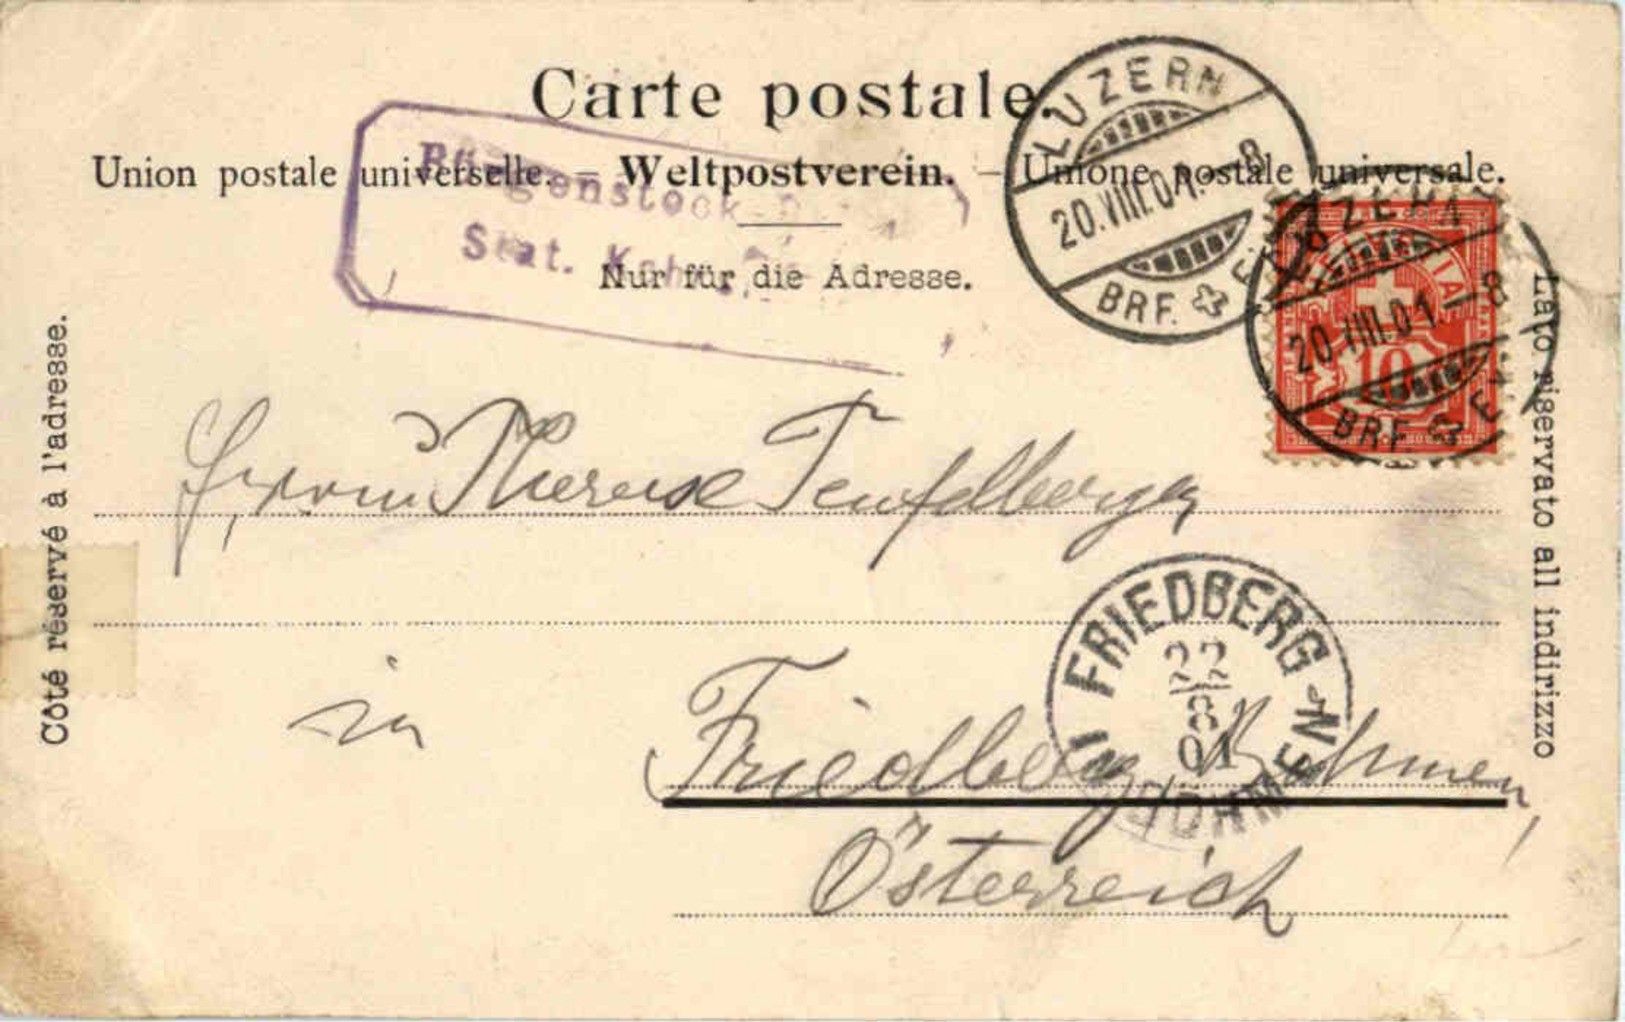 Carte postale
Union postale universelle. — Weltpostverein. — Unione postale universale.
Nur für die Adresse.
Bürgenstock
Stat.
LUZERN
20.VIII.01.–8
BRF. EXP.
20.VIII.01.–8
BRF. EX
HELVETIA
10
Côté réservé à l'adresse.
Lato riservato all indirizzo
Therese Teufelberger
in Friedberg, Böhmen,
Österreich
FRIEDBERG IN BÖHMEN
22
8
01